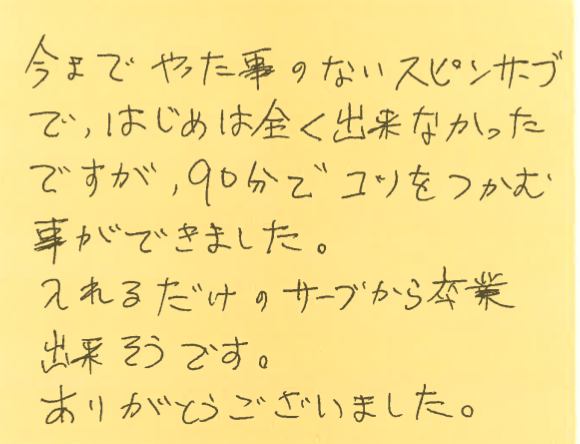 今までやった事のないスピンサーブ
で,はじめは全く出来なかった
ですが,90分でコツをつかむ
事ができました。
入れるだけのサーブから卒業
出来そうです。
ありがとうございました。